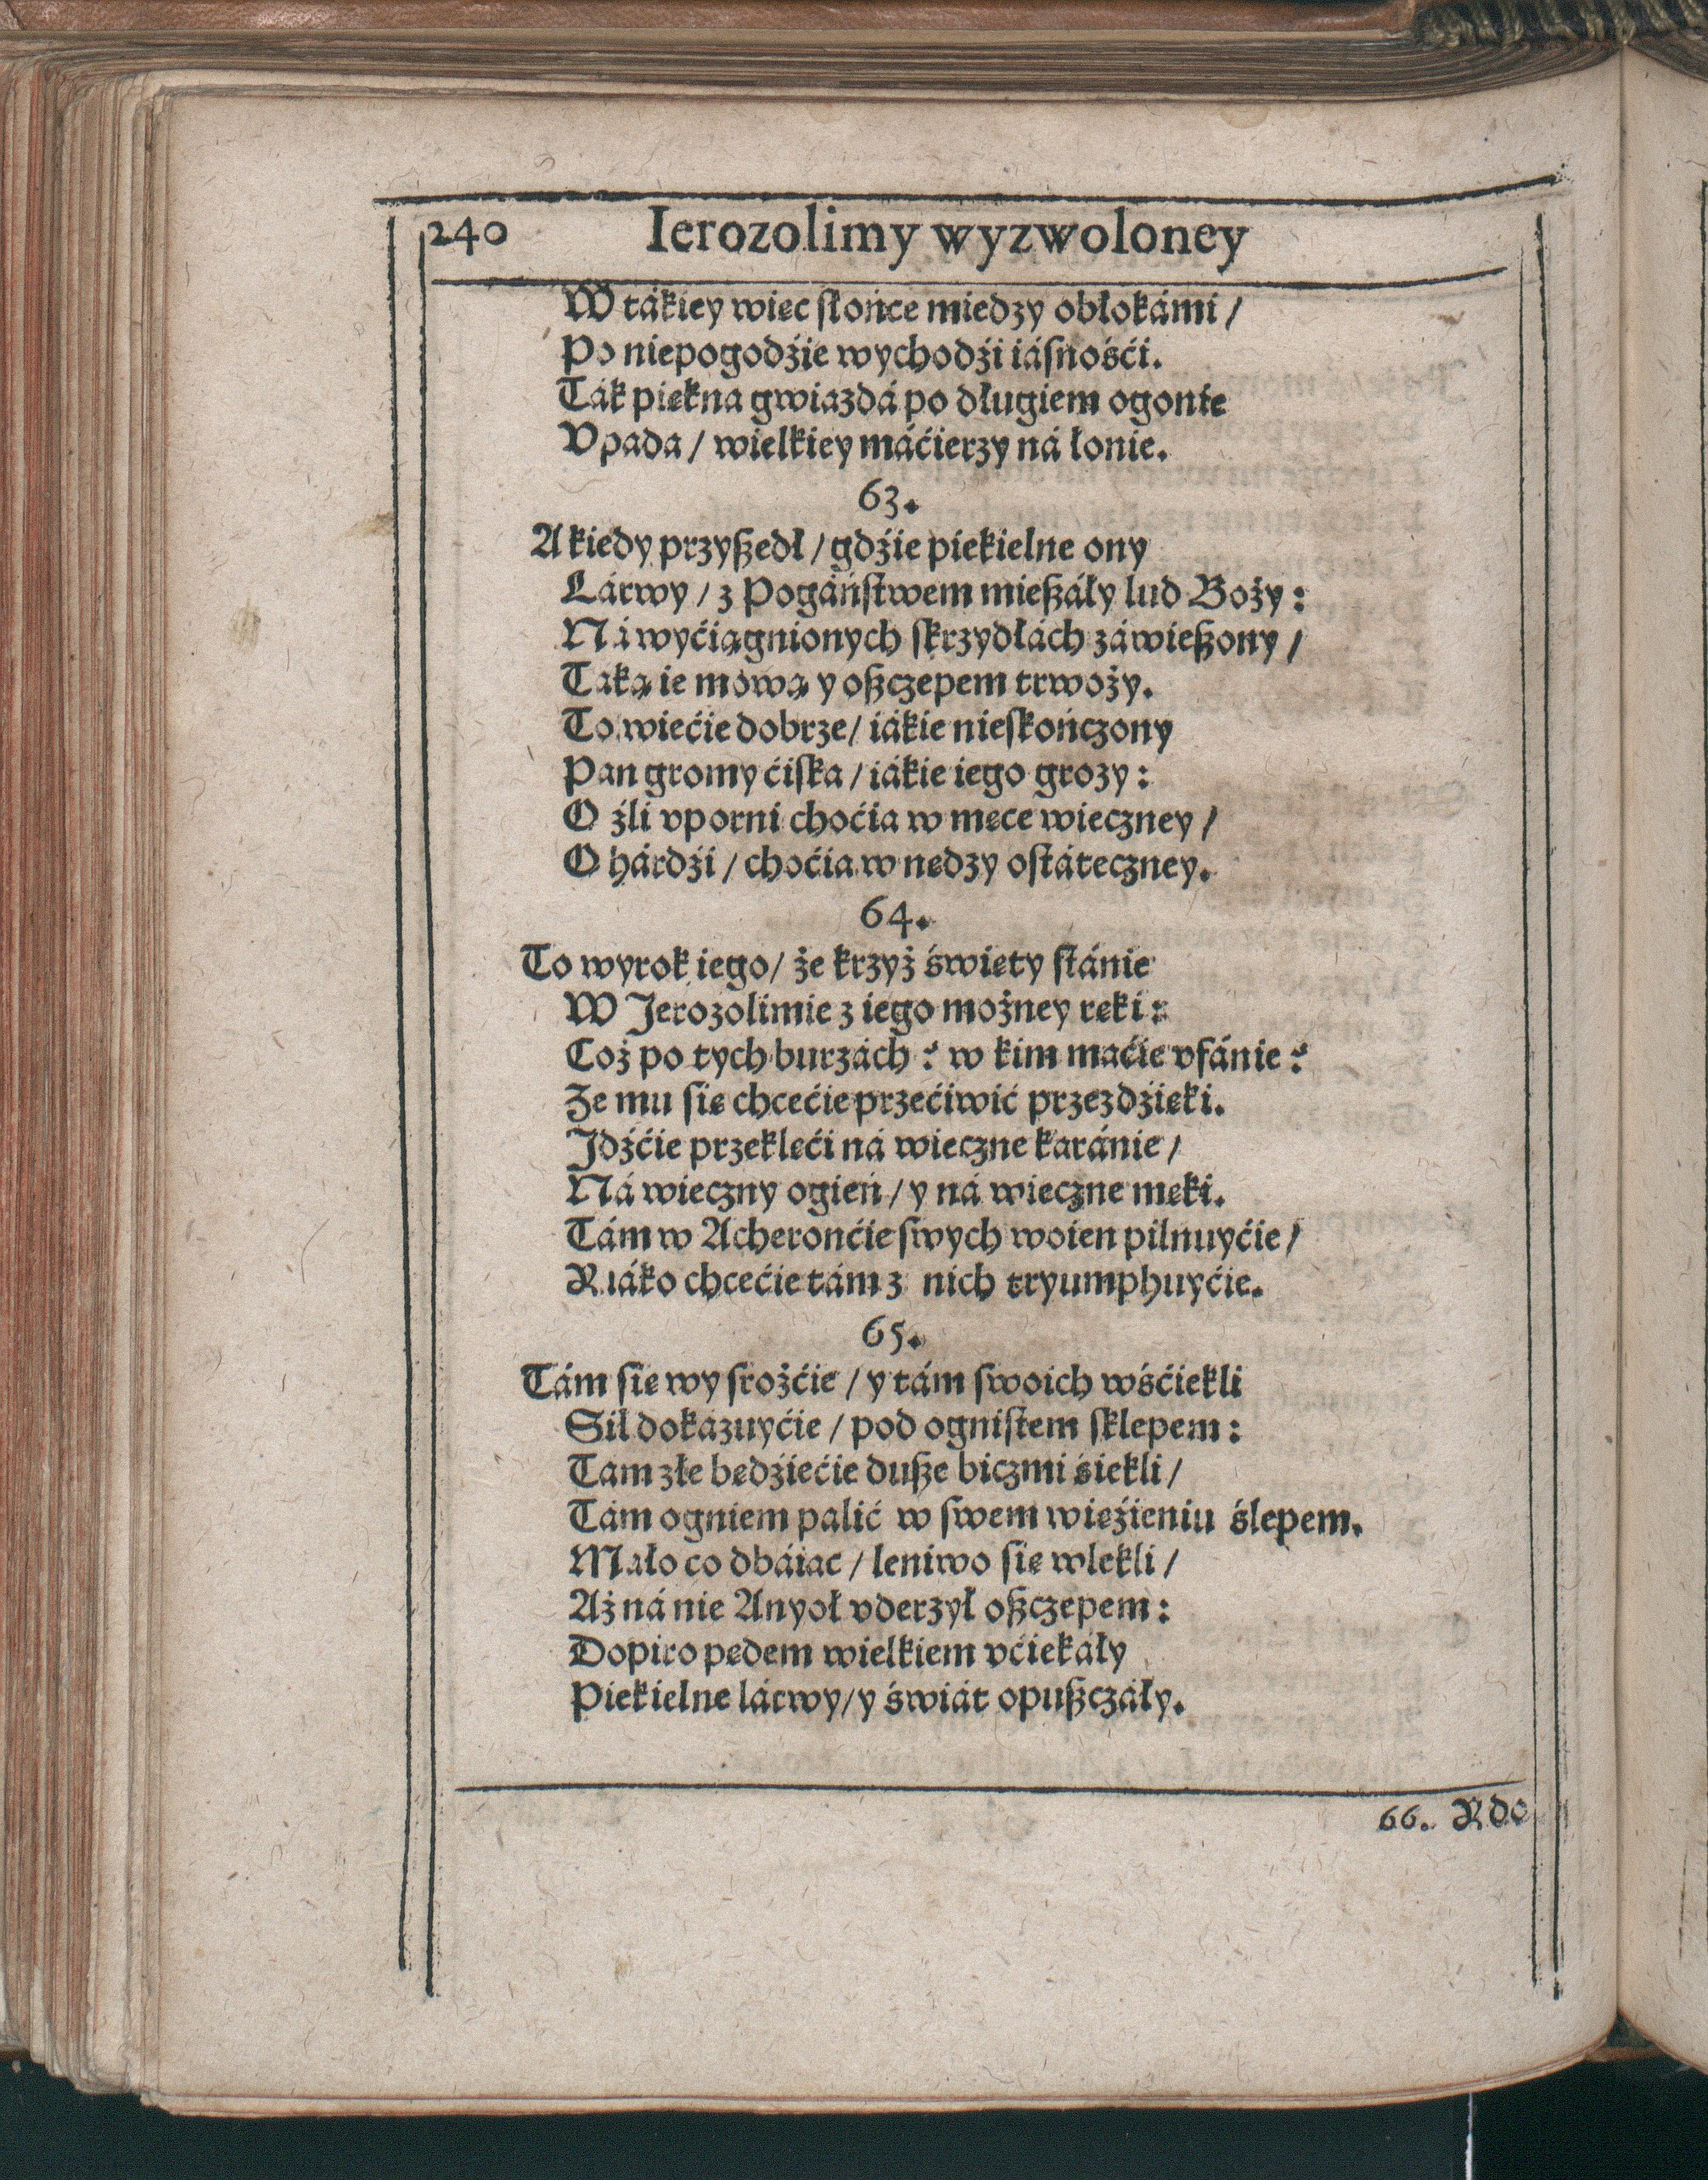 240 Ierozolimy wyzwoloney
W tákiey więc słońce między obłokámi /
Po niepogodźie wychodźi iásnośći.
Ták piękna gwiazdá po długiem ogonie
Vpada / wielkiey máćierzy ná łonie.
63.
A kiedy przyßedł / gdźie piekielne ony
Lárwy / z Pogáństwem mießáły lud Boży:
Ná wyćiągnionych skrzydłách záwießony /
Taką ie mową y oßczepem trwoży.
To wiećie dobrze / iákie nieskończony
Pan gromy ćiska / iákie iego grozy:
O źli vporni choćia w męce wieczney /
O hárdźi / choćia w nędzy ostáteczney.
64.
To wyrok iego / że krzyż święty stánie
W Jerozolimie z iego możney ręki:
Coż po tych burzách? w kim maćie vfánie?
Że mu się chcećie przećiwić przezdźięki.
Jdźćie przeklęći ná wieczne karánie /
Ná wieczny ogień / y ná wieczne męki.
Tám w Acheronćie swych woien pilnuyćie /
Y iáko chcećie tám z nich tryumphuyćie.
65.
Tám się wy srożćie / y tám swoich wśćiekli
Sił dokázuyćie / pod ognistem sklepem:
Tam złe będźiećie duße biczmi śiekli /
Tám ogniem palić w swem więźieniu ślepem.
Mało co dbáiąc / leniwo się wlekli /
Aż ná nie Anyoł vderzył oßczepem:
Dopiro pędem wielkiem vćiekáły
Piekielne lárwy / y świát opußczáły.
66. Y do